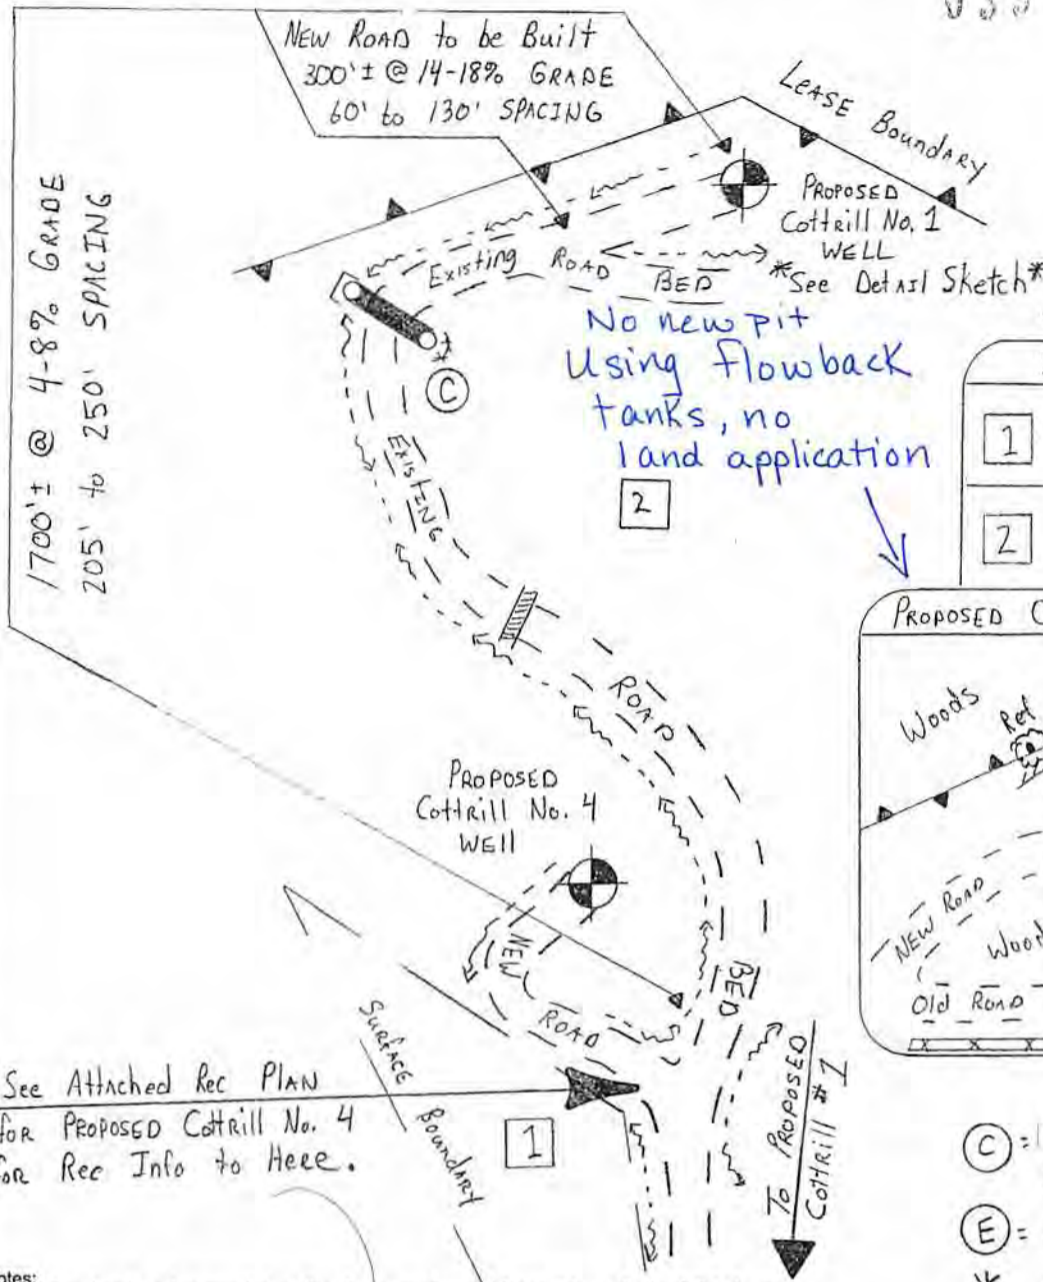 NEW ROAD to be Built
300'± @ 14-18% GRADE
60' to 130' SPACING
LEASE BOUNDARY
1700'± @ 4-8% GRADE
205' to 250' SPACING
PROPOSED
Cottrill No. 1
WELL
*See Detail Sketch*
Existing ROAD BED
No new pit
Using flowback
tanks, no
land application
C
1
2
2
PROPOSED
Existing
ROAD
BED
Woods
Ref
NEW ROAD
Old ROAD
PROPOSED
Cottrill No. 4
WELL
NEW
ROAD
SURFACE
Boundary
See Attached Rec PLAN
for PROPOSED Cottrill No. 4
for Rec Info to Here.
1
To PROPOSED
Cottrill #1
C =
E =